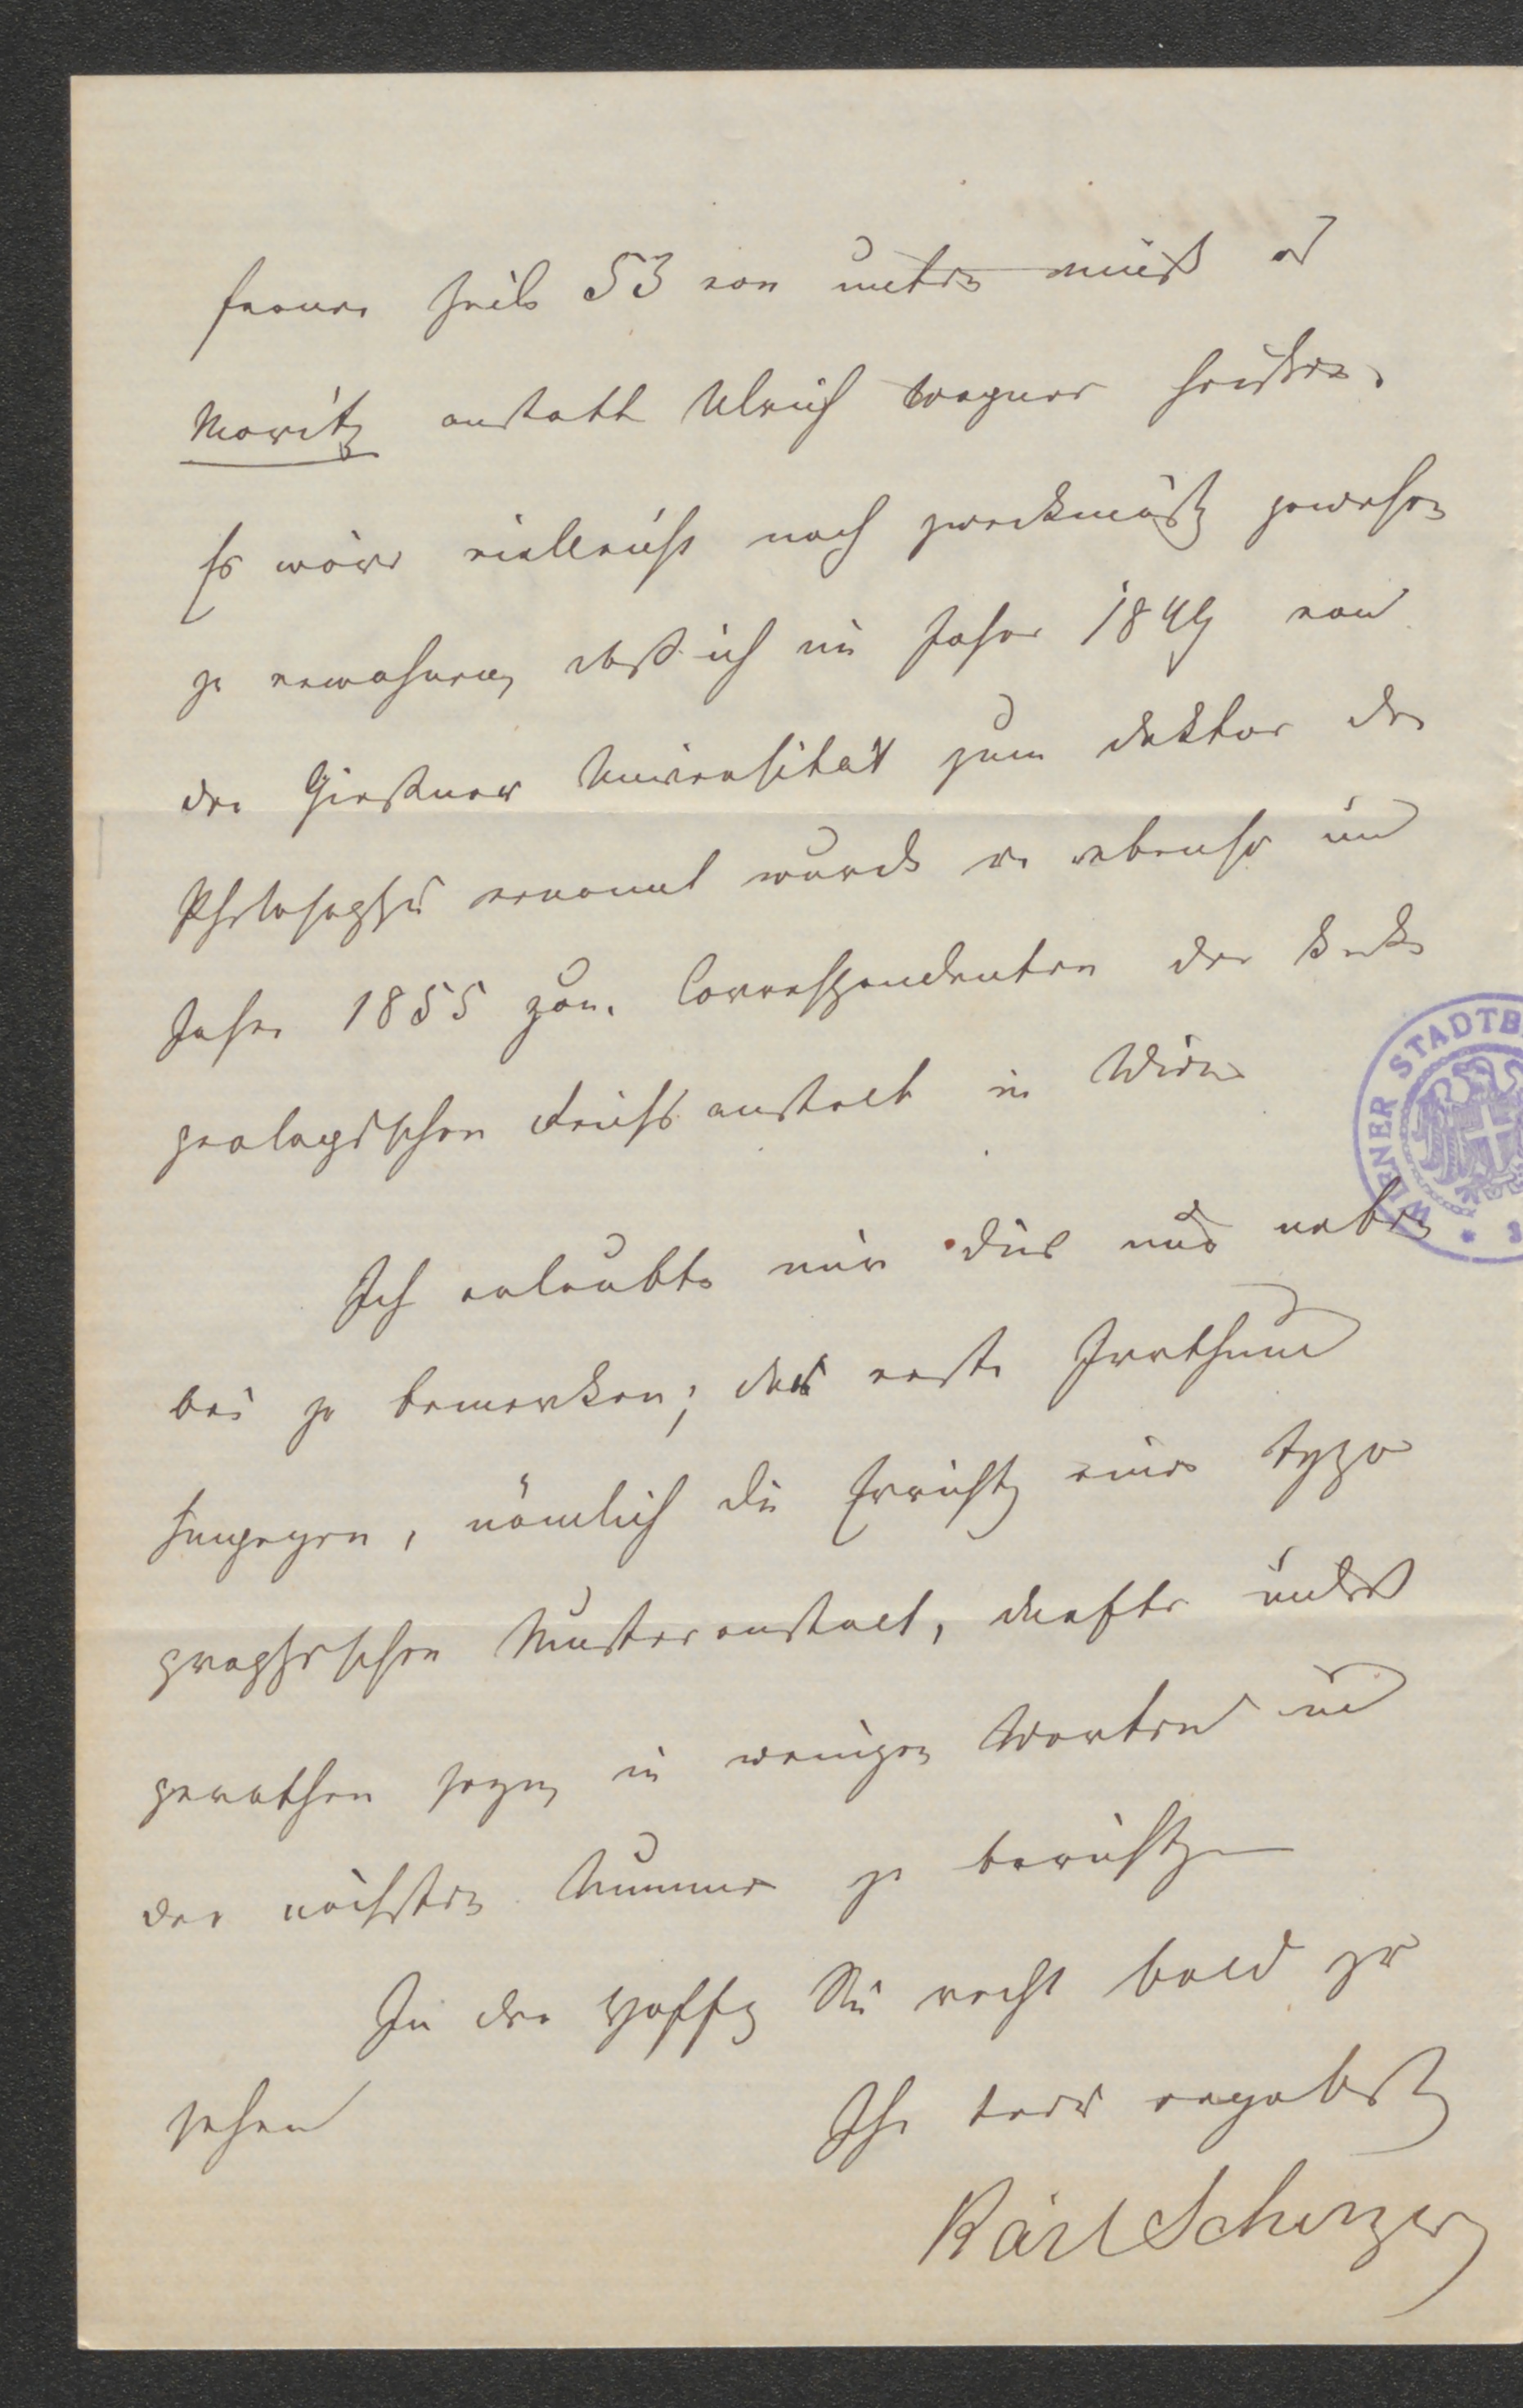 ferner Zeile 53 von unten muß es
Moritz anstatt Ulrich Wagner heißen.
Es wäre vielleicht noch zweckmäßig gewesen
zu erwähnen, daß ich im Jahre 1849 von
der Gießner Universität zum Doktor der
Philosophie ernannt wurde so ebenso im
Jahre 1855 zum Correspondenten der k. k.
geologischen Reichsanstalt in Wien
Ich erlaubte mir dies nur neben
bei zu bemerken; der erste Irrthum
hingegen, nämlich die Erricht eines typo
graphischen Musteranstalt, dürfte indeß
gerathen seyn, in wenigen Worten in
der nächsten Nummer zu berichtigen
In der Hoffg Sie recht bald zu
sehen
Ihr treu ergebenst
Karl Scherzer
WIENER STADTB